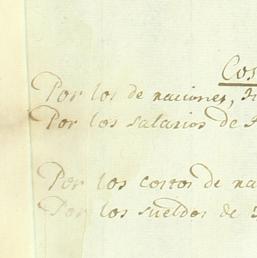 Cos
Por los de naciones,
Por los salarios de
Por los costos de na
Por los sueldos de